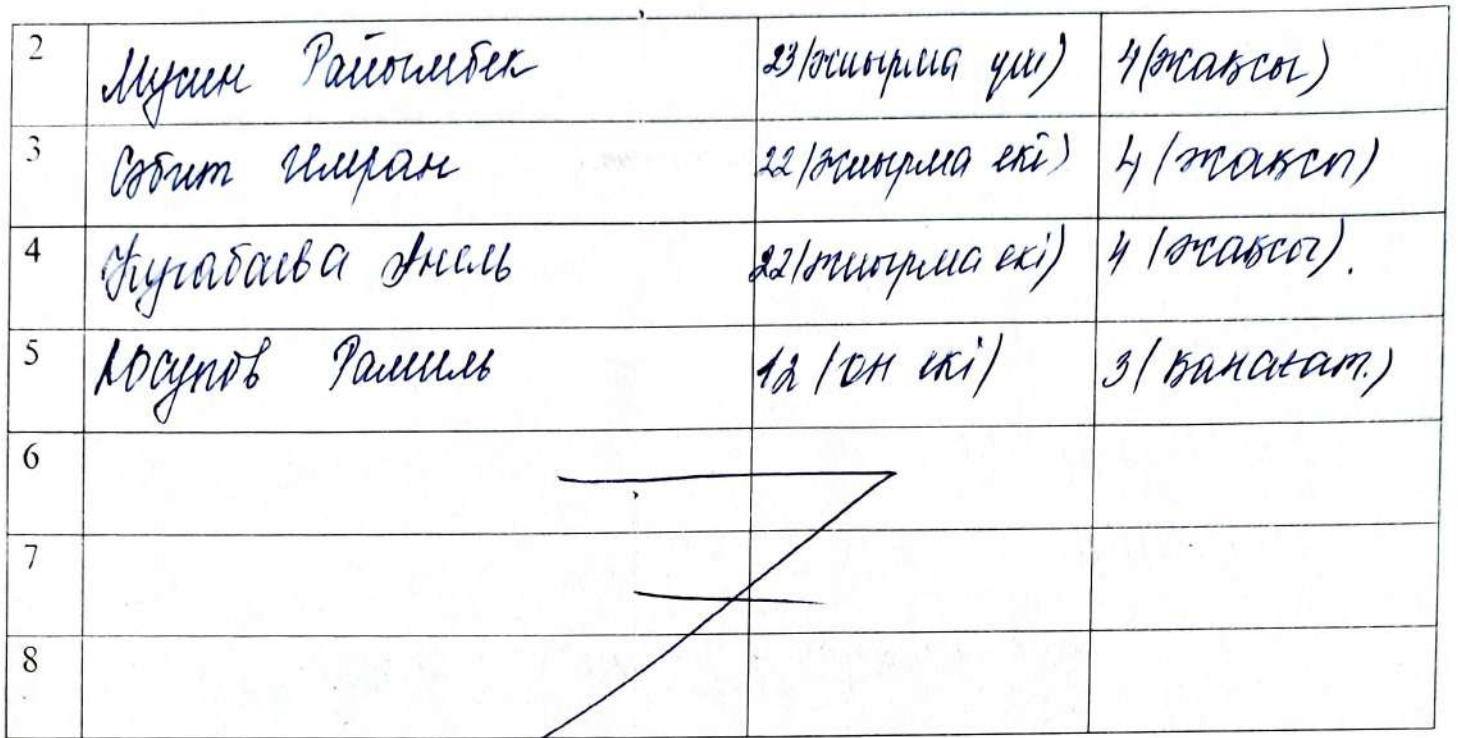 2 Мусин Райымбек 23 (жиырма үш) 4 (жақсы)
3 Сәбит Имран 22 (жиырма екі) 4 (жақсы)
4 Жугабаева Анель 22 (жиырма екі) 4 (жақсы).
5 Юсупов Рамиль 12 (он екі) 3 (қанағат.)
6
7
8